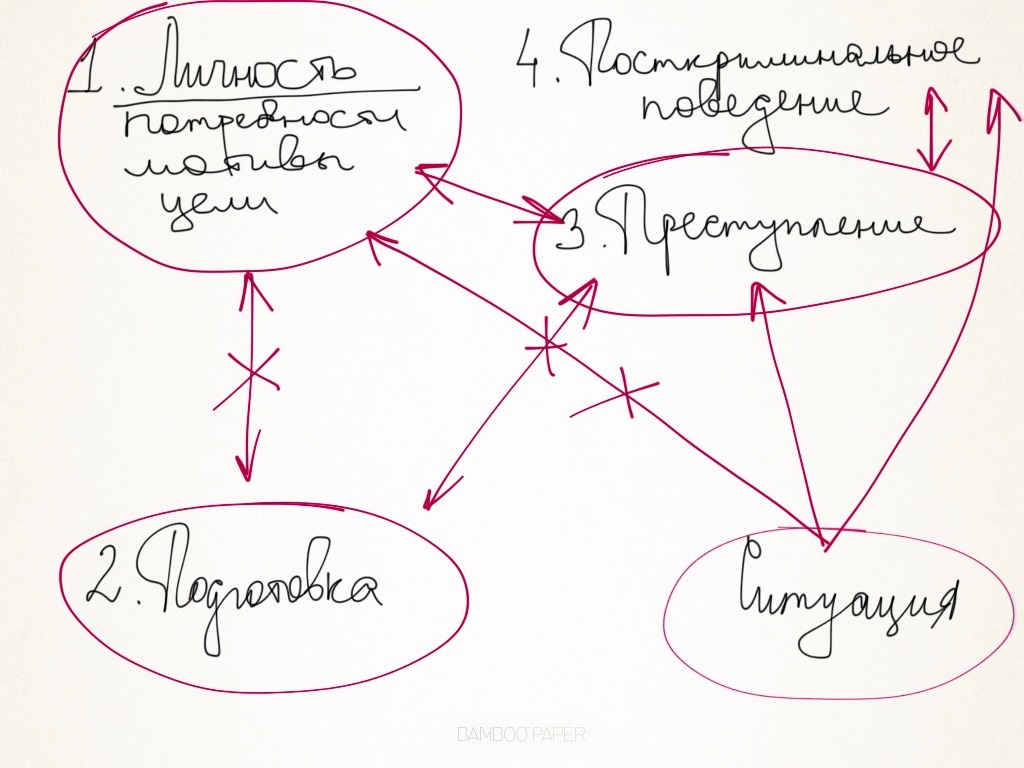 1. Личность
потребности
мотивы
цели
4. Посткриминальное
поведение
3. Преступление
2. Подготовка
Ситуация
BAMBOO PAPER